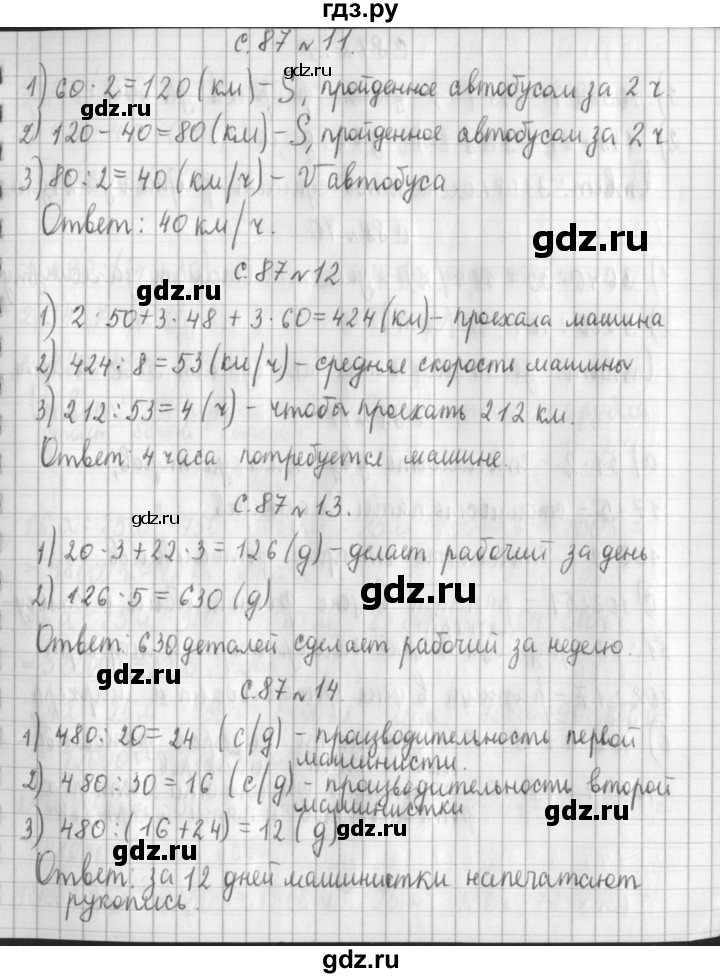 гдз.ру
с.87 № 11.
1) 60 · 2 = 120 (км) - S, пройденное автобусом за 2 ч.
2) 120 - 40 = 80 (км) - S, пройденное автобусом за 2 ч
3) 80 : 2 = 40 (км/ч) - V автобуса
Ответ: 40 км/ч.
gdz.ru
с.87 № 12
gdz.ru
1) 2 · 50 + 3 · 48 + 3 · 60 = 424 (км) - проехала машина
2) 424 : 8 = 53 (км/ч) - средняя скорость машины
3) 212 : 53 = 4 (ч) - чтобы проехать 212 км.
gdz.ru
Ответ: 4 часа потребуется машине.
с.87 № 13.
gdz.ru
1) 20 · 3 + 22 · 3 = 126 (д) - делает рабочий за день
2) 126 · 5 = 630 (д)
gdz.ru
Ответ: 630 деталей сделает рабочий за неделю.
gdz.ru
с.87 № 14.
1) 480 : 20 = 24 (с/д) - производительность первой
машинисти.
2) 480 : 30 = 16 (с/д) - производительность второй
машинистки
3) 480 : (16 + 24) = 12 (д)
gdz.ru
gdz.ru
Ответ: за 12 дней машинистки напечатают
рукопись.
gdz.ru